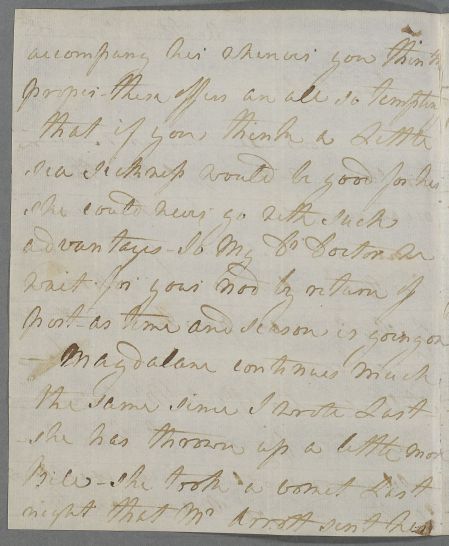 accompany his whenever you think
proper these offers are all so tempting
that if you think a Little
sea sickness would be good for her
she could never go with such
advantages - So My Dr Doctor we
wait for your Nod by return of
post - as time and season is going on
- Magdalane continues much
the same since I wrote Last
she has thrown up a little more
Bile - she took a vomet Last
night that Mr Arrott sent her